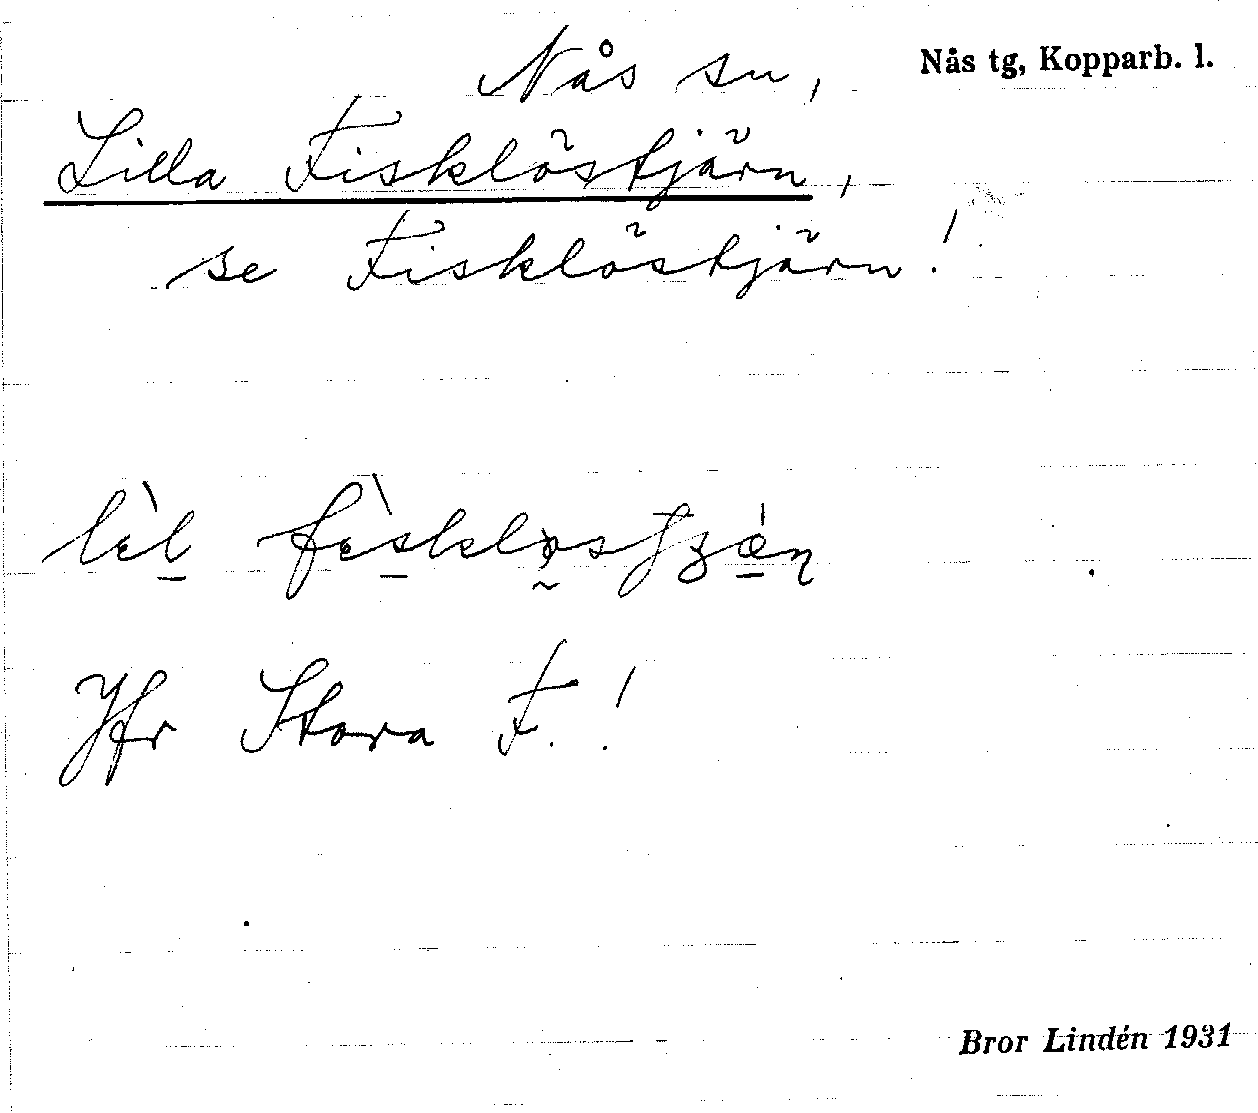 Nås sn, Nås tg, Kopparb. l.
Lilla Fisklöstjärn,
se Fisklöstjärn!
Jfr Stora F.!
Bror Lindén 1931